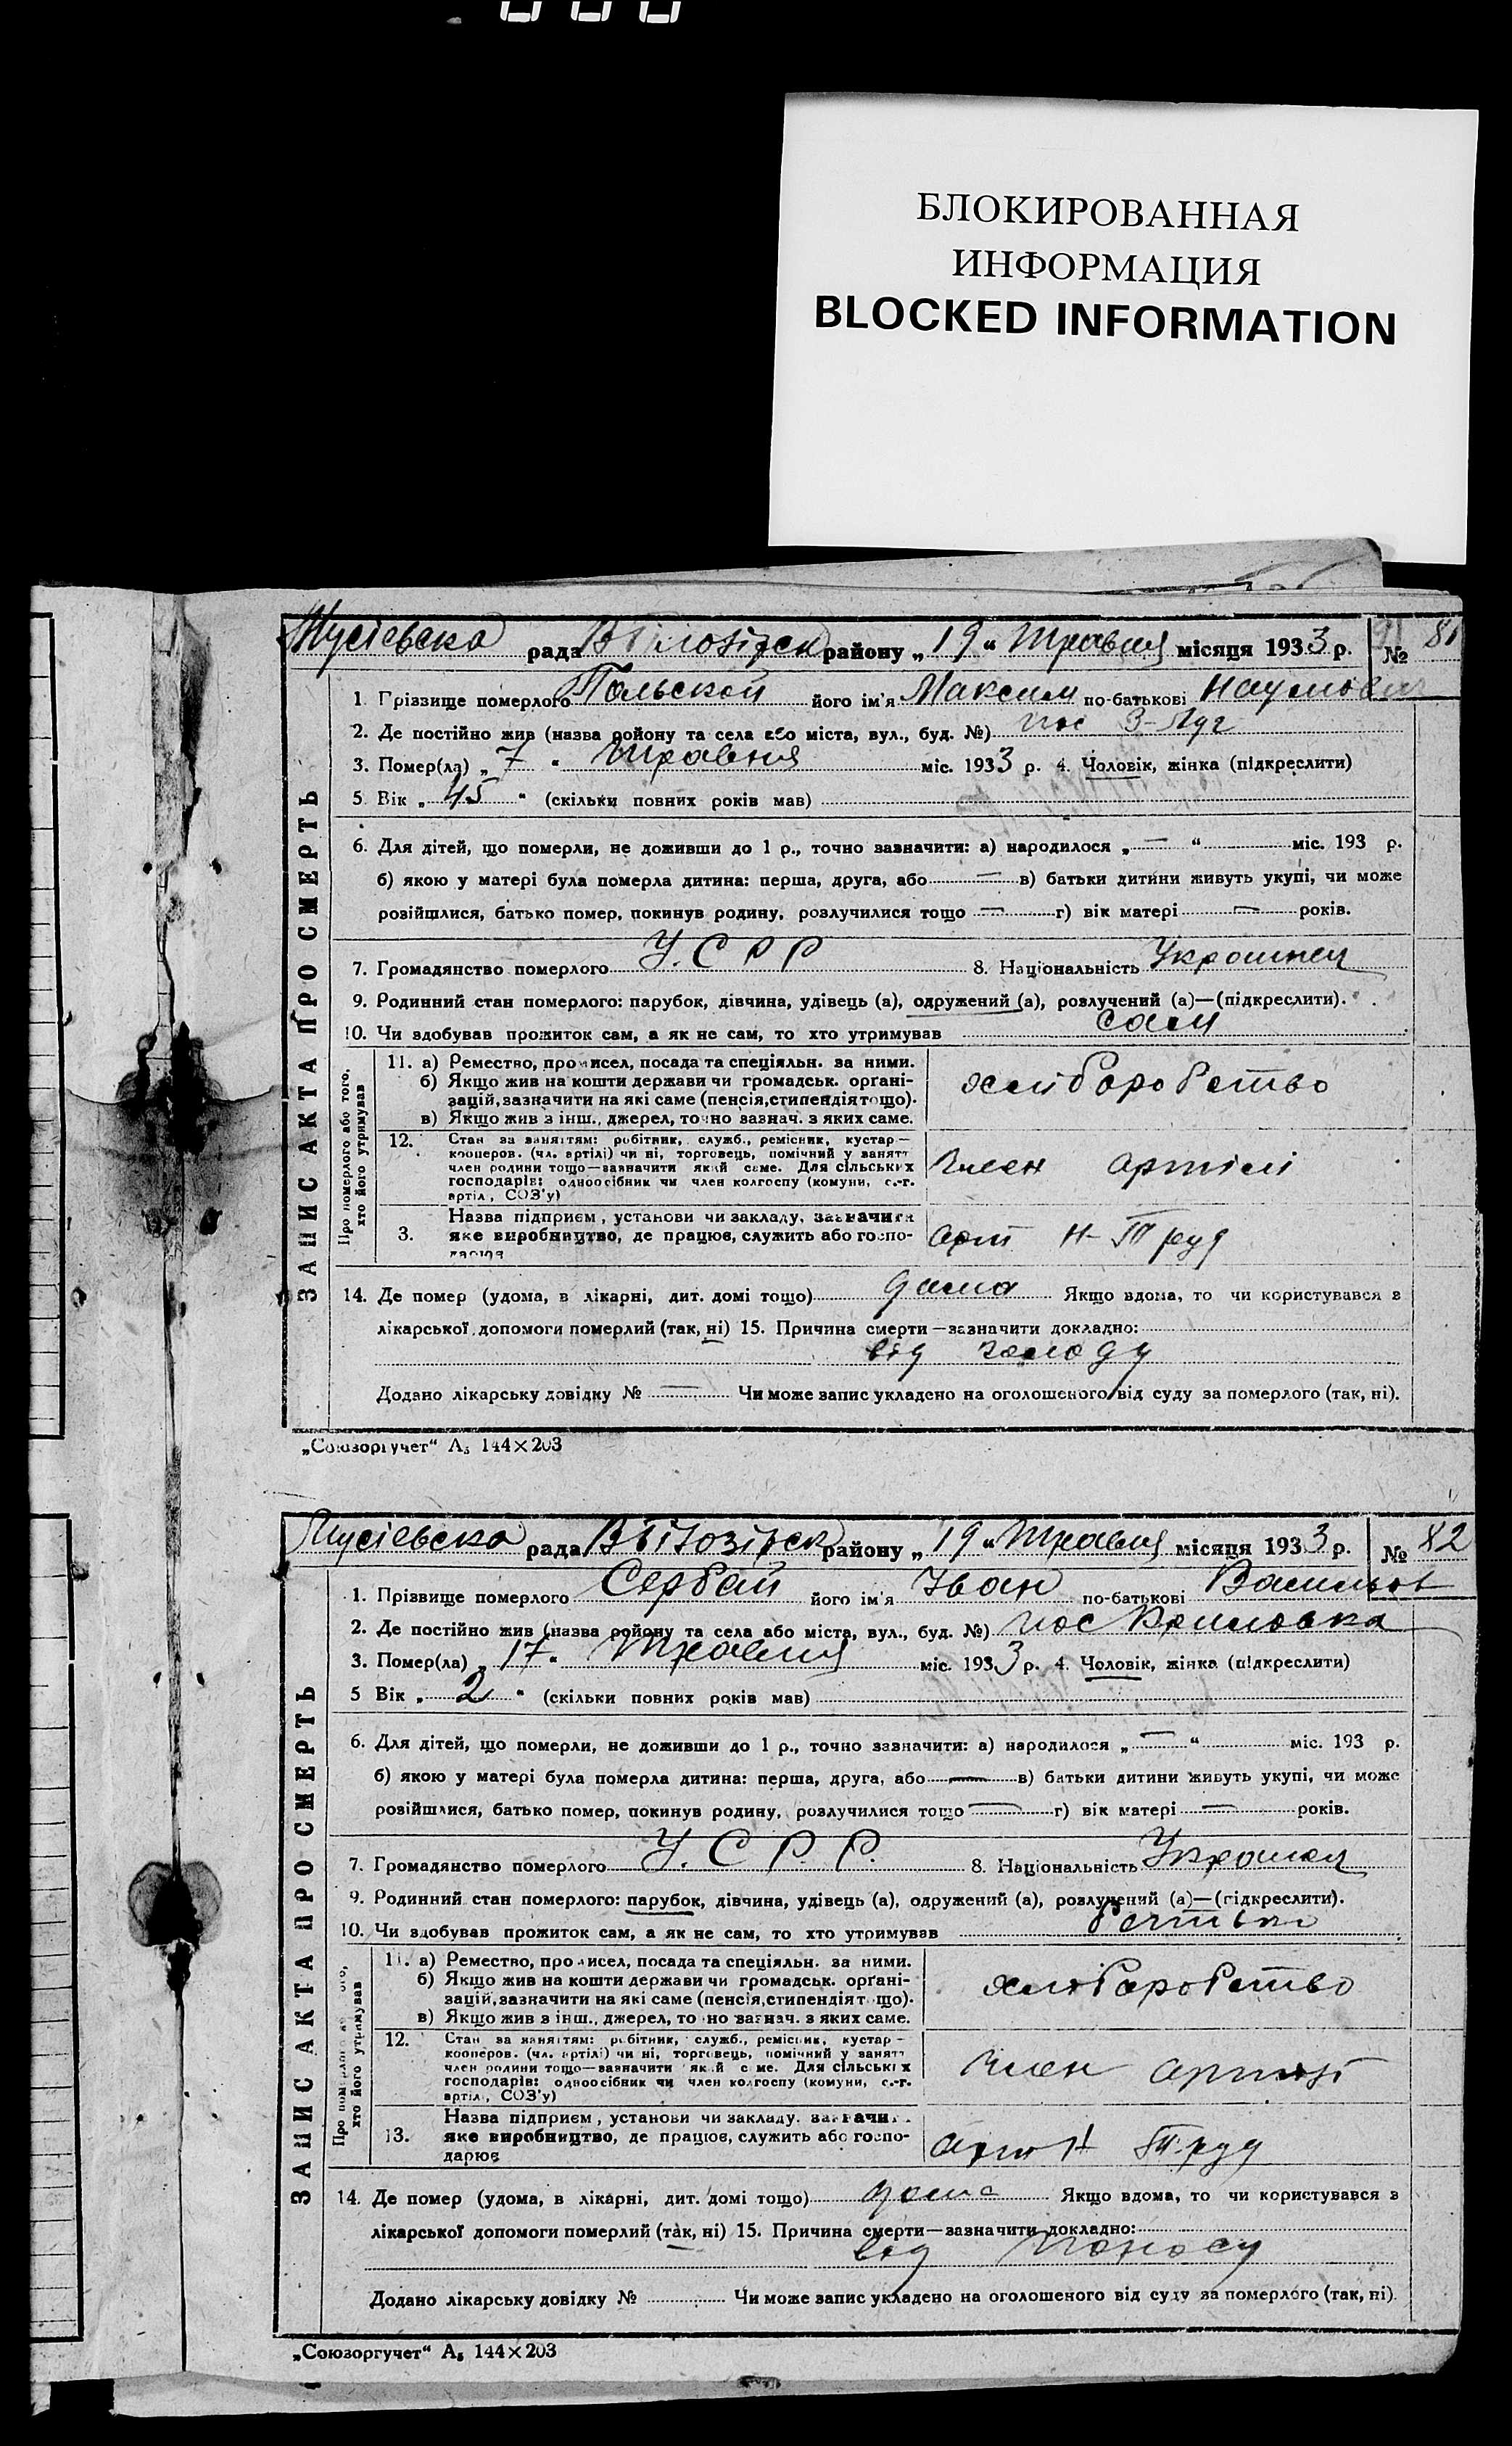 БЛОКИРОВАННАЯ
ИНФОРМАЦИЯ
BLOCKED INFORMATION
ЗАПИС АКТА ПРО СМЕРТЬ
рада району „19“ Травня місяця 1933 р. № 81
1. Прізвище померлого Польской його ім'я Максим по-батькові Наумович
2. Де постійно жив (назва району та села або міста, вул., буд. №) пос З-Луг
3. Помер(ла) „7“ Травня міс. 1933 р. 4. Чоловік, жінка (підкреслити)
5. Вік „45“ (скільки повних років мав)
6. Для дітей, що померли, не доживши до 1 р., точно зазначити: а) народилося „—“ міс. 193 р.
б) якою у матері була померла дитина: перша, друга, або — в) батьки дитини живуть укупі, чи може
розійшлися, батько помер, покинув родину, розлучилися тощо — г) вік матері — років.
7. Громадянство померлого У.С.Р.Р 8. Національність Украинец
9. Родинний стан померлого: парубок, дівчина, удівець (а), одружений (а), розлучений (а)—(підкреслити).
10. Чи здобував прожиток сам, а як не сам, то хто утримував сам
Про померлого або того,
хто його утримував
11. а) Ремество, промисел, посада та спеціяльн. за ними.
б) Якщо жив на кошти держави чи громадськ. орґані-
зацій, зазначити на які саме (пенсія, стипендія тощо).
в) Якщо жив з інш., джерел, точно зазнач. з яких саме.
хлиборобство
12. Стан за заняттям: робітник, служб., ремісник, кустар—
кооперов. (чл. артілі) чи ні, торговець, помічний у занятт
член родини тощо—зазначити який саме. Для сільських
господарів: одноосібник чи член колгоспу (комуни, с.-г.
артіл, СОЗ'у)
член артілі
3. Назва підприєм, установи чи закладу, зазначити
яке виробництво, де працює, служить або госпо-
дарює
арт Н-Труд
14. Де помер (удома, в лікарні, дит. домі тощо) дома Якщо вдома, то чи користувався з
лікарської допомоги померлий (так, ні) 15. Причина смерти—зазначити докладно:
від голоду
Додано лікарську довідку № — Чи може запис укладено на оголошеного від суду за померлого (так, ні).
„Союзоргучет“ А₅ 144×203
ЗАПИС АКТА ПРО СМЕРТЬ
рада району „19“ Травня місяця 1933 р. № 82
1. Прізвище померлого Сербай його ім'я Іван по-батькові Васильов
2. Де постійно жив (назва району та села або міста, вул., буд. №) пос
3. Помер(ла) „17“ Травня міс. 1933 р. 4. Чоловік, жінка (підкреслити)
5 Вік „2“ (скільки повних років мав)
6. Для дітей, що померли, не доживши до 1 р., точно зазначити: а) народилося „—“ міс. 193 р.
б) якою у матері була померла дитина: перша, друга, або — в) батьки дитини живуть укупі, чи може
розійшлися, батько помер, покинув родину, розлучилися тощо — г) вік матері — років.
7. Громадянство померлого У.С.Р.Р. 8. Національність Украинец
9. Родинний стан померлого: парубок, дівчина, удівець (а), одружений (а), розлучений (а)—(підкреслити).
10. Чи здобував прожиток сам, а як не сам, то хто утримував батько
хто його утримував
11. а) Ремество, промисел, посада та спеціяльн. за ними.
б) Якщо жив на кошти держави чи громадськ. орґані-
зацій, зазначити на які саме (пенсія, стипендія тощо).
в) Якщо жив з інш., джерел, точно зазнач. з яких саме.
хлиборобство
12. Стан за заняттям: робітник, служб., ремісник, кустар—
кооперов. (чл. артілі) чи ні, торговець, помічний у занятт
член родини тощо—зазначити який саме. Для сільських
господарів: одноосібник чи член колгоспу (комуни, с.-г.
артіл, СОЗ'у)
член артілі
13. Назва підприєм, установи чи закладу. зазначи
яке виробництво, де працює, служить або госпо-
дарює
арт Н Труд
14. Де помер (удома, в лікарні, дит. домі тощо) дома Якщо вдома, то чи користувався з
лікарської допомоги померлий (так, ні) 15. Причина смерти—зазначити докладно:
від поносу
Додано лікарську довідку № Чи може запис укладено на оголошеного від суду за померлого (так, ні).
„Союзоргучет“ А₅ 144×203